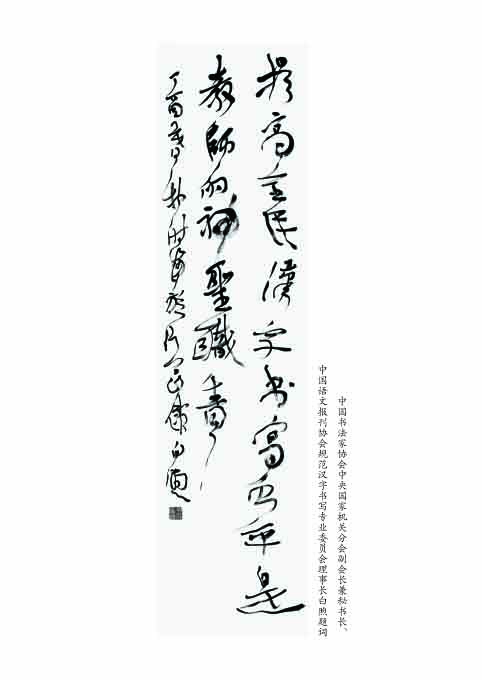 提高全民漢字书寫水平是
教師的神聖職責
丁酉 白煦
中国书法家协会中央国家机关分会副会长兼秘书长、
中国语文报刊协会规范汉字书写专业委员会理事长白煦题词